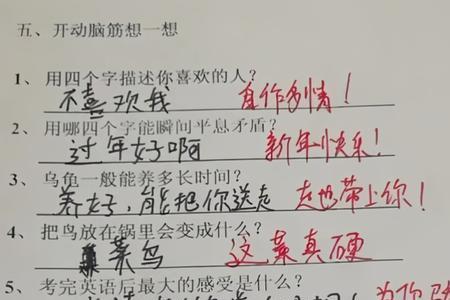 五、开动脑筋想一想
1、用四个字描述你喜欢的人？
不喜欢我 自作多情！
2、用哪四个字能瞬间平息矛盾？
过年好啊 新年快乐！
3、乌龟一般能养多长时间？
养好，能把你送走 走也带上你！
4、把鸟放在锅里会变成什么？
菜鸟 这菜真硬
5、考完英语后最大的感受是什么？